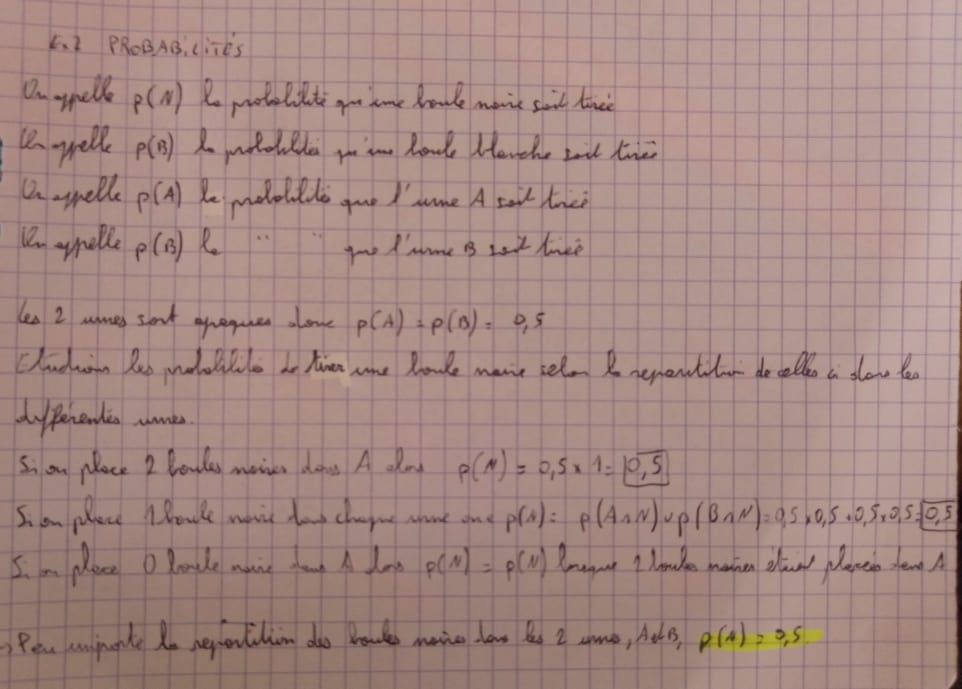 Ex 2 PROBABILITÉS
On appelle p(N) la probabilité qu'une boule noire soit tirée
On appelle p(B) la probabilité qu'une boule blanche soit tirée
On appelle p(A) la probabilité que l'urne A soit tirée
On appelle p(B) la " " que l'urne B soit tirée
Les 2 urnes sont opaques donc p(A) = p(B) = 0,5
Etudions les probabilités de tirer une boule noire selon la repartition de celles ci dans les
différentes urnes.
Si on place 2 boules noires dans A alors p(N) = 0,5 × 1 = 0,5
Si on place 1 boule noire dans chaque urne p(N) = p(A∩N) ∪ p(B∩N) = 0,5 × 0,5 + 0,5 × 0,5 = 0,5
Si on place 0 boule noire dans A alors p(N) = p(N) lorsque 2 boules noires étaient placées dans A
→ Peu importe la repartition des boules noires dans les 2 urnes, A et B, p(N) = 0,5